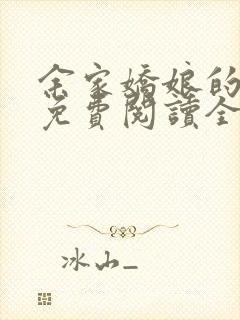 余家嬌娘的
免費閱讀全
冰山_